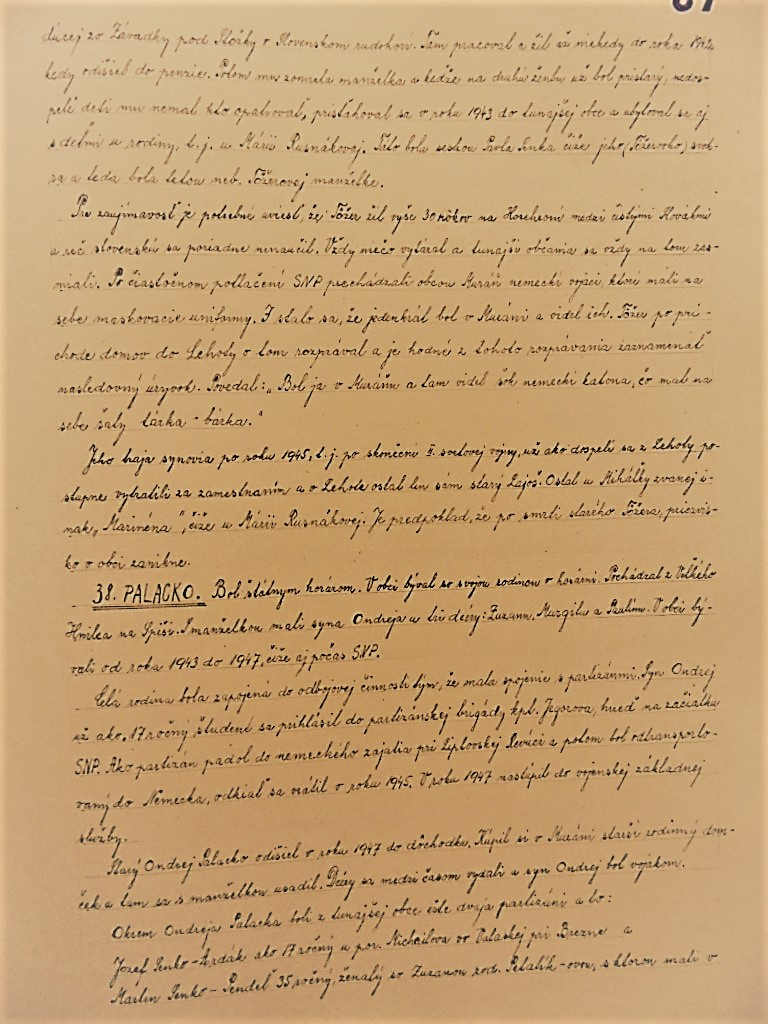 67
dúcej zo Závadky pod Stožky v Slovenskom rudohorí. Tam pracoval a žil až niekedy do roka 1942
kedy odišiel do penzie. Potom mu zomrela manželka a keďže na druhú ženbu už bol pristarý, nedos-
pelé deti mu nemal kto opatrovať, prisťahoval sa v roku 1943 do tunajšej obce a ubytoval sa aj
s deťmi u rodiny, t.j. u Márii Rusnákovej. Táto bola sestrou Pavla Senka čiže jeho (Tőžerovho) svok-
ra a teda bola tetou neb. Tőžerovej manželke.
Pre zaujímavosť je potrebné uviesť, že Tőžer žil vyše 30 rôkov na Horehroní medzi čistými Slovákmi
a reč slovenskú sa poriadne nenaučil. Vždy niečo vytáral a tunajší občania sa vždy na tom zas-
miali. Po čiastočnom potlačení SNP prechádzali obcou Muráň nemeckí vojaci, ktoré mali na
sebe maskovacie uniformy. I stalo sa, že jedenkrát bol v Muráni a videl ich. Tőžer po prí-
chode domov do Lehoty o tom rozprával a je hodné z tohoto rozprávania zaznamenať
nasledovný úryvok. Povedal: „Bol ja v Muráňu a tam videl šok nemecki katona, čo mal na
sebe šaty tárka - bárka."
Jeho traja synovia po roku 1945, t.j. po skončení II. svetovej vojny, už ako dospelí sa z Lehoty po-
stupne vytratili za zamestnaním a v Lehote ostal len sám starý Lajoš. Ostal u Mihálky zvanej i-
nak „Marinéna", čiže u Márii Rusnákovej. Je predpoklad, že po smrti starého Tőžera, priezvis-
ko v obci zanikne.
38. PALACKO. Bol štátnym horárom. V obci býval so svojou rodinou v horárni. Pochádzal z Veľkého
Hnilca na Spiši. S manželkou mali syna Ondreja a tri dcéry: Zuzanu, Margitu a Paulínu. V obci bý-
vali od roka 1943 do 1947, čiže aj počas SNP.
Celá rodina bola zapojená do odbojovej činnosti tým, že mala spojenie s partizánmi. Syn Ondrej
už ako 17 ročný študent sa prihlásil do partizánskej brigády kpt. Jegorova, hneď na začiatku
SNP. Ako partizán padol do nemeckého zajatia pri Liptovskej Revúci a potom bol odtransporto-
vaný do Nemecka, odkiaľ sa vrátil v roku 1945. V roku 1947 nastúpil do vojenskej základnej
služby.
Starý Ondrej Palacko odišiel v roku 1947 do dôchodku. Kúpil si v Muráni starší rodinný dom-
ček a tam sa s manželkou usadil. Dcéry sa medzi časom vydali a syn Ondrej bol vojakom.
Okrem Ondreja Palacka boli z tunajšej obce ešte dvaja partizáni a to:
Jozef Senko - ako 17 ročný u por. Michailova vo Valaskej pri Brezne a
Martin Senko - Pendeľ 35 ročný, ženatý so Zuzanou rod. Petalík-ovou, s ktorou mali v